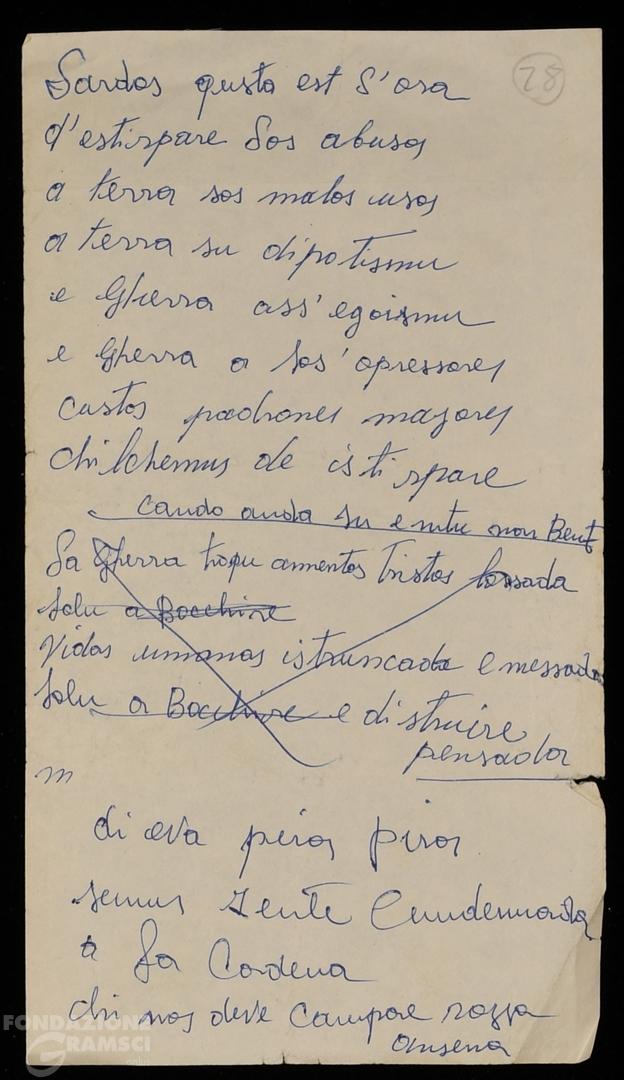 28
Sardos questa est s'ora
d'estirpare sos abusos
a terra sos malos usos
a terra su dipotismu
e Gherra ass'egoismu
e Gherra a sos' opressores
custos padrones majores
chi lchemus de istirpare
cando anda su entu non Bent
Sa Gherra tropu ammentos tristos lassada
solu a Bocchire
Vidas umanas istruncada e messada
solu a Bocchire e distruire
pensada
m
di eva piros piros
semus zente Cundennada
a sa Cadena
chi nos deve Campae razza
anzena
FONDAZIONE
GRAMSCI
onlus